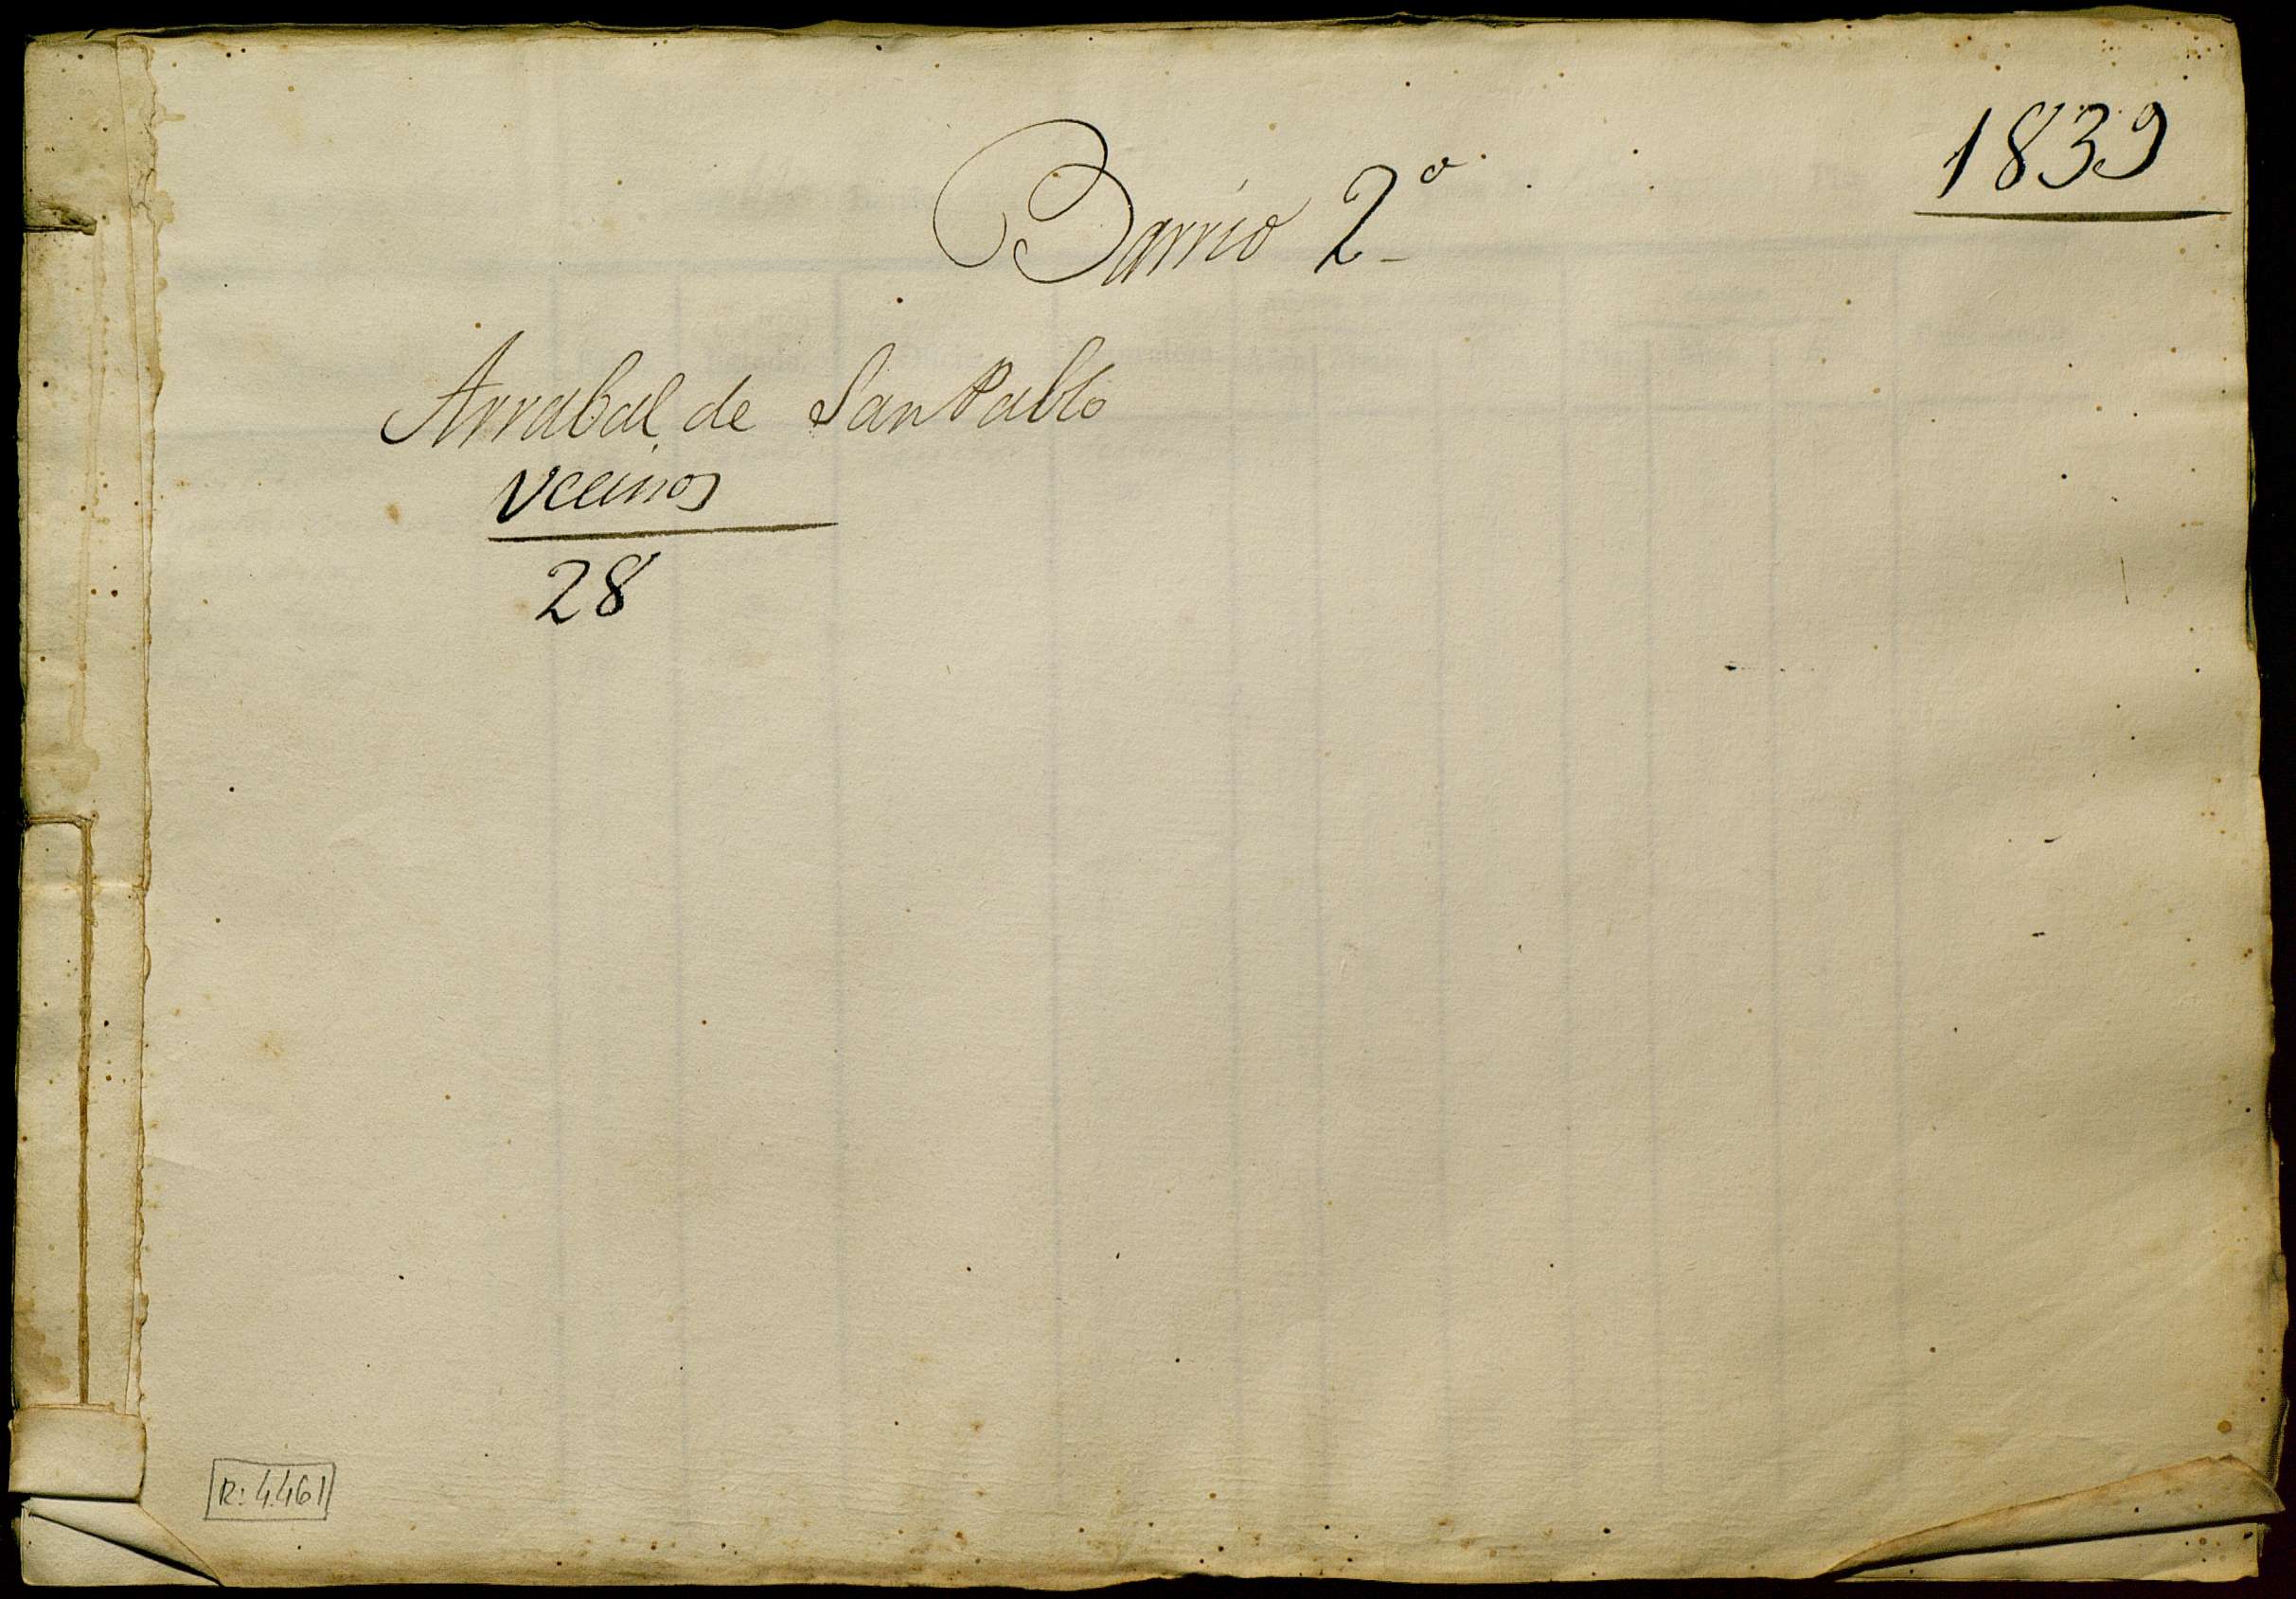 1839
Barrio 2º
Arrabal de San Pablo
Vecinos
28
R: 4.461